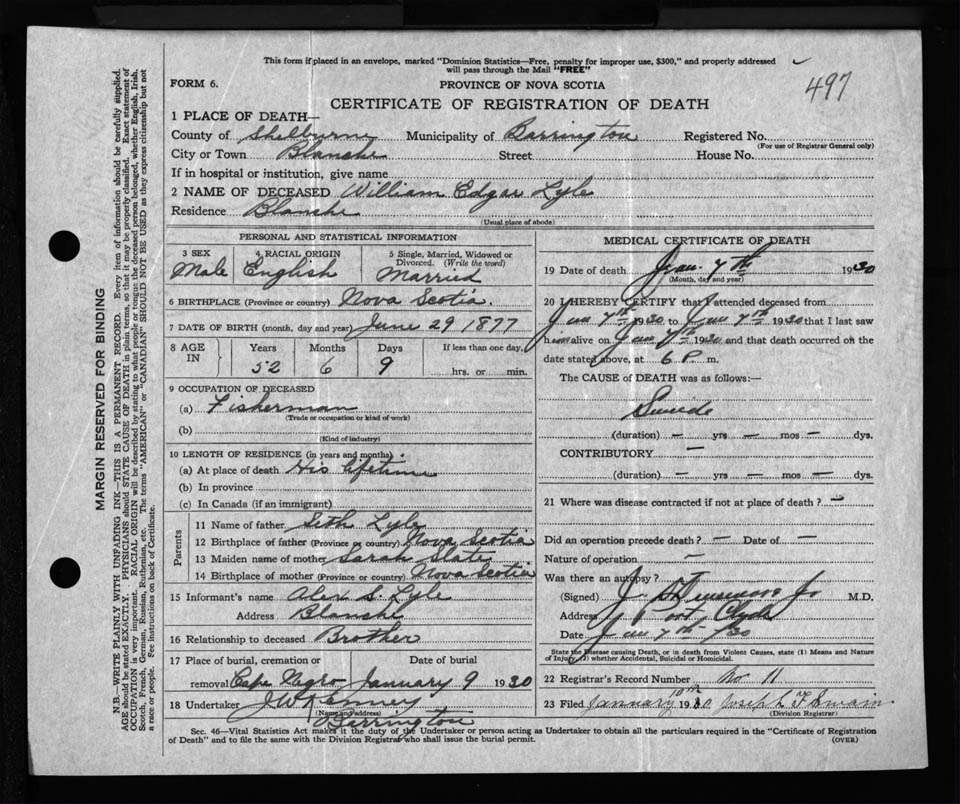 This form if placed in an envelope, marked "Dominion Statistics—Free, penalty for improper use, $300," and properly addressed
will pass through the Mail "FREE"
497
FORM 6.
PROVINCE OF NOVA SCOTIA
CERTIFICATE OF REGISTRATION OF DEATH
1 PLACE OF DEATH—
County of Shelburne Municipality of Barrington Registered No.
(For use of Registrar General only)
City or Town Blanche Street House No.
If in hospital or institution, give name
2 NAME OF DECEASED William Edgar Lyle
Residence Blanche
(Usual place of abode)
PERSONAL AND STATISTICAL INFORMATION
3 SEX 4 RACIAL ORIGIN 5 Single, Married, Widowed or
Divorced. (Write the word)
Male English Married
6 BIRTHPLACE (Province or country) Nova Scotia.
7 DATE OF BIRTH (month, day and year) June 29 1877
8 AGE IN Years Months Days If less than one day,
52 6 9 hrs. or min.
9 OCCUPATION OF DECEASED
(a) Fisherman
(Trade or occupation or kind of work)
(b)
(Kind of industry)
10 LENGTH OF RESIDENCE (in years and months)
(a) At place of death His lifetime
(b) In province
(c) In Canada (if an immigrant)
Parents
11 Name of father Seth Lyle
12 Birthplace of father (Province or country) Nova Scotia
13 Maiden name of mother Sarah Slate
14 Birthplace of mother (Province or country) Nova Scotia
15 Informant's name Alex S. Lyle
Address Blanche
16 Relationship to deceased Brother
17 Place of burial, cremation or Date of burial
removal Cape Negro January 9 1930
18 Undertaker
(Name and address)
Barrington
MEDICAL CERTIFICATE OF DEATH
19 Date of death Jan. 7th 1930
(Month, day and year)
20 I HEREBY CERTIFY that I attended deceased from
Jan 7th 1930 to Jan 7th 1930 that I last saw
him alive on Jan 7th 1930 and that death occurred on the
date stated above, at 6 P m.
The CAUSE OF DEATH was as follows:—
Suicide
(duration) — yrs — mos — dys.
CONTRIBUTORY —
(duration) — yrs — mos — dys.
21 Where was disease contracted if not at place of death? —
Did an operation precede death? — Date of —
Nature of operation —
Was there an autopsy?
(Signed) J. Jr M.D.
Address Port Clyde
Date Jan 7th /30
State the Disease causing Death, or in death from Violent Causes, state (1) Means and Nature
of Injury, (2) whether Accidental, Suicidal or Homicidal.
22 Registrar's Record Number No. 11
23 Filed January 10th 1930 Joseph Swain
(Division Registrar)
Sec. 46—Vital Statistics Act makes it the duty of the Undertaker or person acting as Undertaker to obtain all the particulars required in the "Certificate of Registration
of Death" and to file the same with the Division Registrar who shall issue the burial permit. (OVER)
MARGIN RESERVED FOR BINDING
N.B.—WRITE PLAINLY WITH UNFADING INK—THIS IS A PERMANENT RECORD. Every item of information should be carefully supplied.
AGE should be stated EXACTLY. PHYSICIANS should STATE CAUSE OF DEATH in plain terms, so that it may be properly classified. Exact statement of
OCCUPATION is very important. RACIAL ORIGIN will be described by stating to what people or tongue the deceased person belonged, whether English, Irish,
Scotch, French, German, Russian, Ruthenian, etc. The terms "AMERICAN" or "CANADIAN" SHOULD NOT BE USED as they express citizenship but not
a race or people. See instructions on back of Certificate.